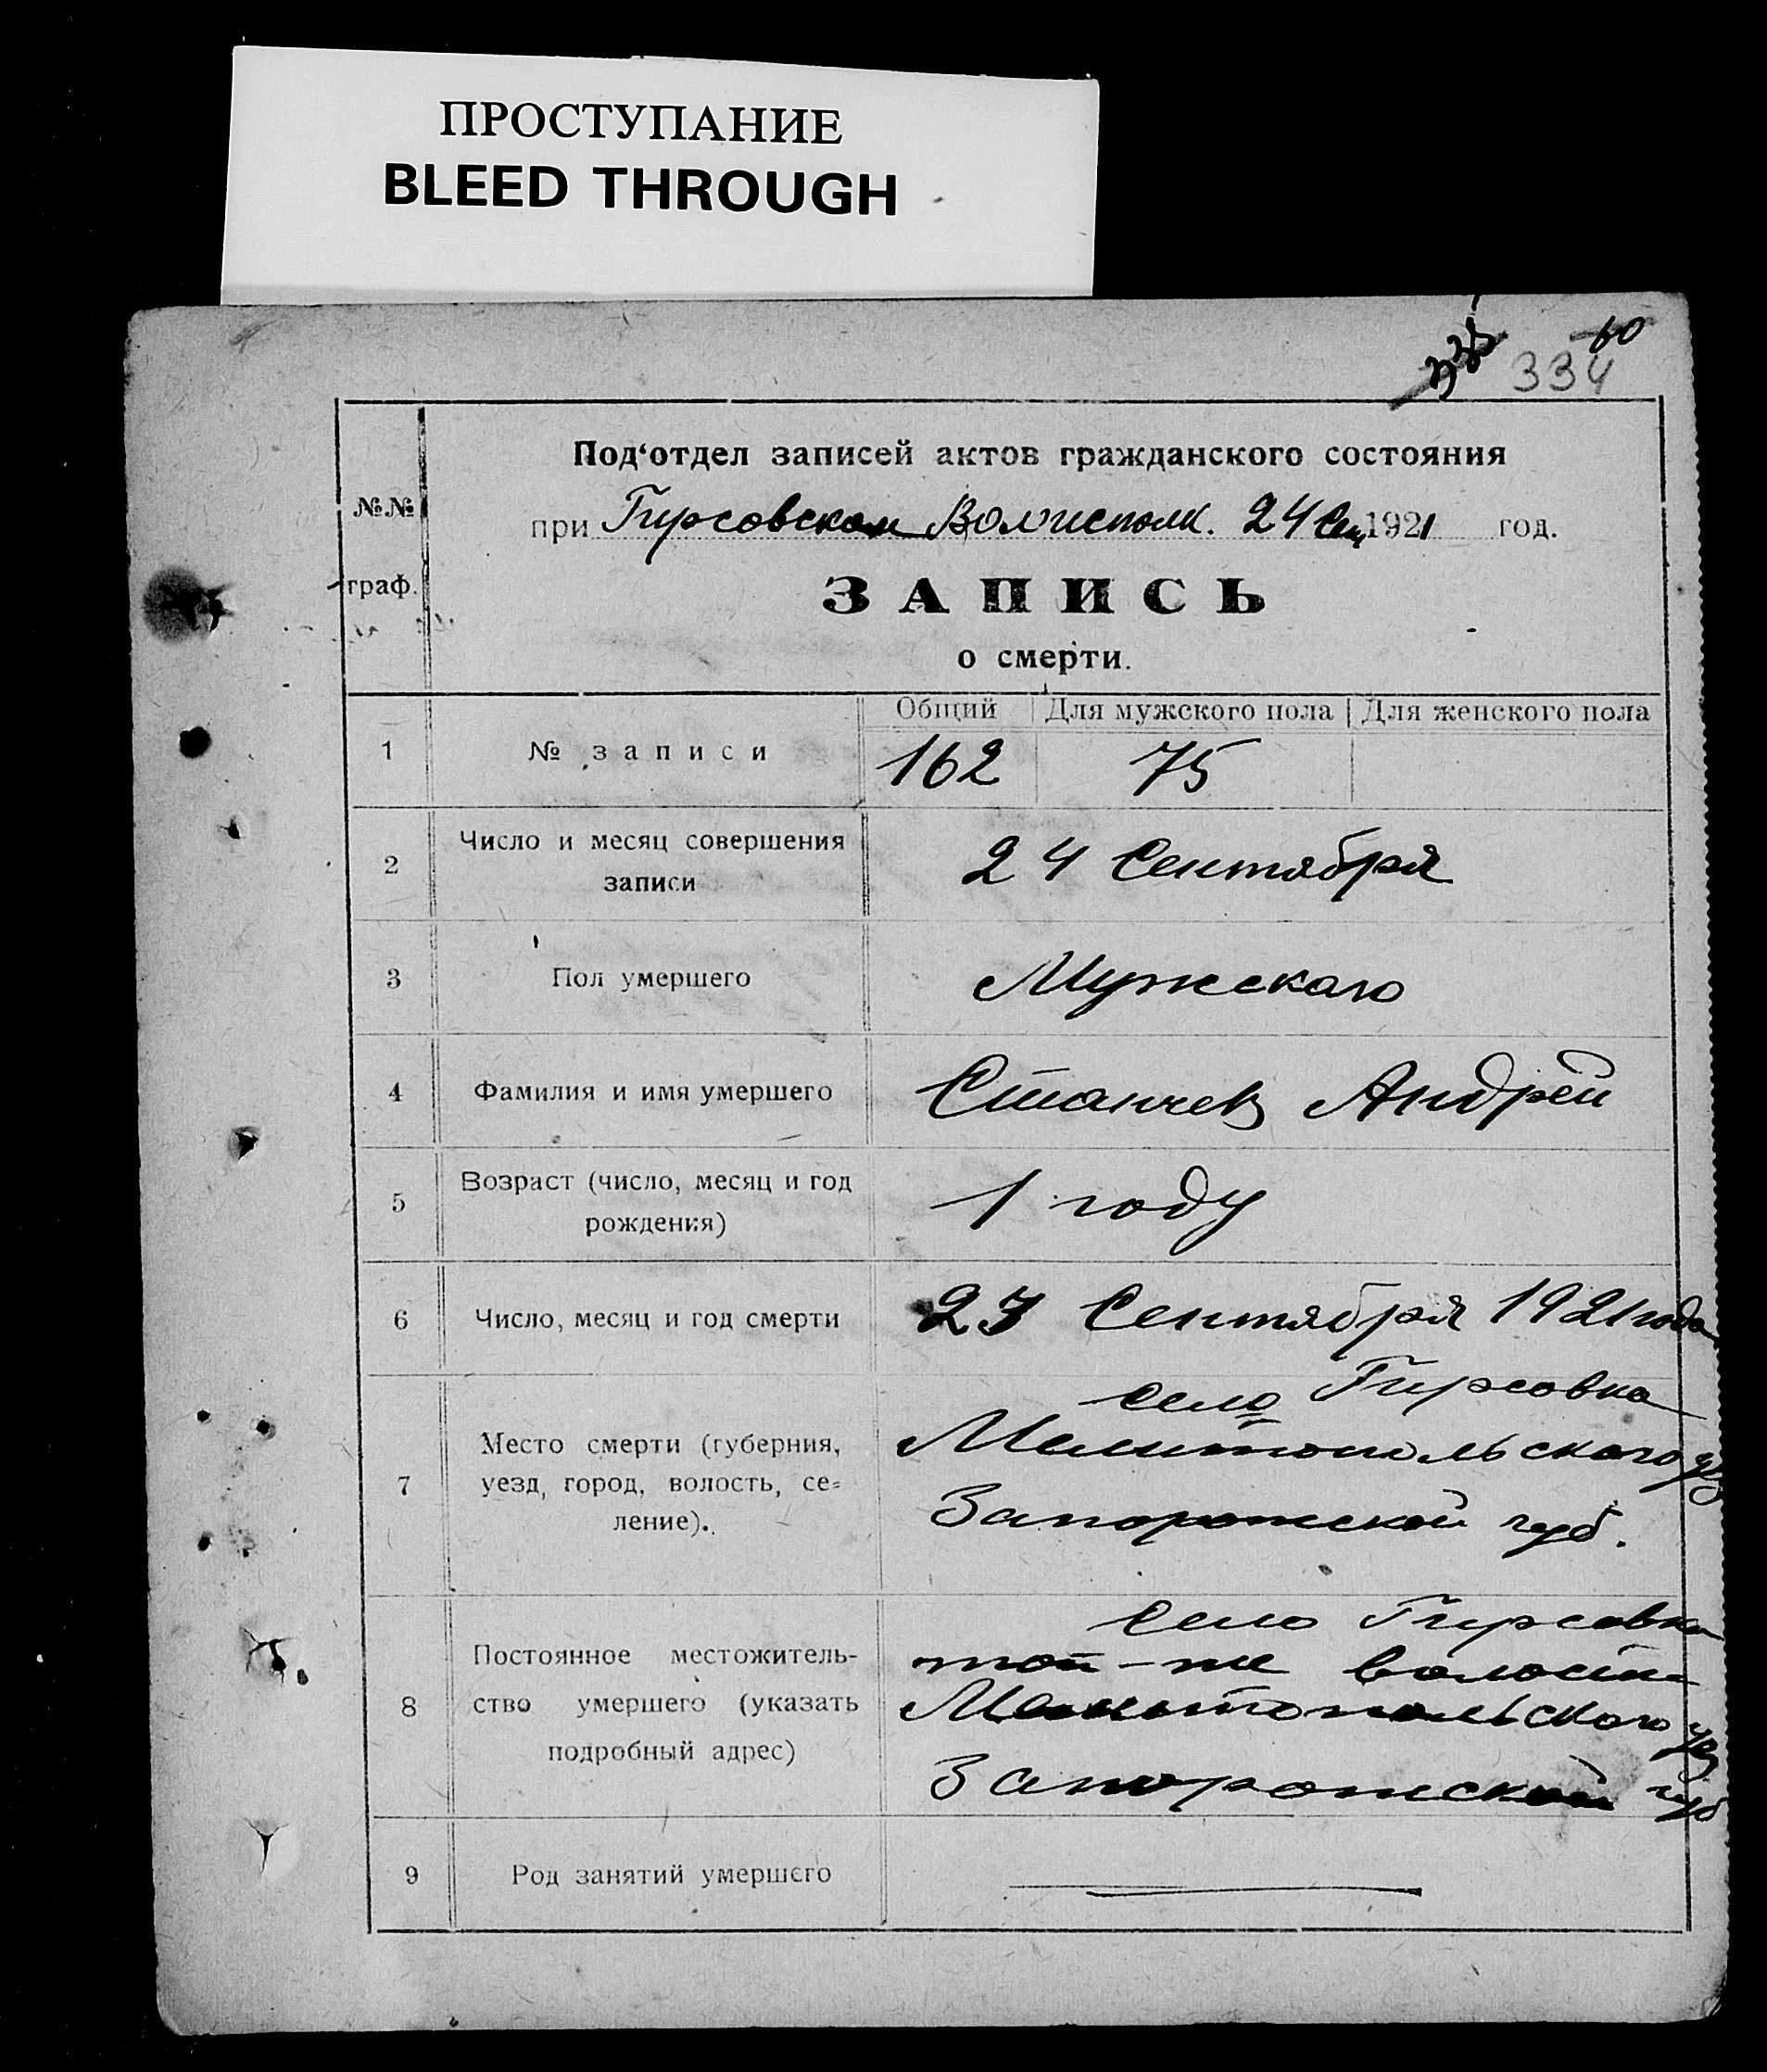 ПРОСТУПАНИЕ
BLEED THROUGH
335 60
334
Под‘отдел записей актов гражданского состояния
№№ при Гирсовском Волисполк. 24 Сен 1921 год.
граф.
ЗАПИСЬ
о смерти.
Общий Для мужского пола Для женского пола
1 № записи 162 75
2 Число и месяц совершения
записи 24 Сентября
3 Пол умершего Мужскаго
4 Фамилия и имя умершего Станчев Андрей
5 Возраст (число, месяц и год
рождения) 1 году
6 Число, месяц и год смерти 23 Сентября 1921 года
село Гирсовка
7 Место смерти (губерния, Мелитопольского уез
уезд, город, волость, се-
ление). Запорожской губ.
село Гирсовка
8 Постоянное местожитель- той-же волости
ство умершего (указать Мелитопольского уез
подробный адрес) Запорожской губ
9 Род занятий умершего